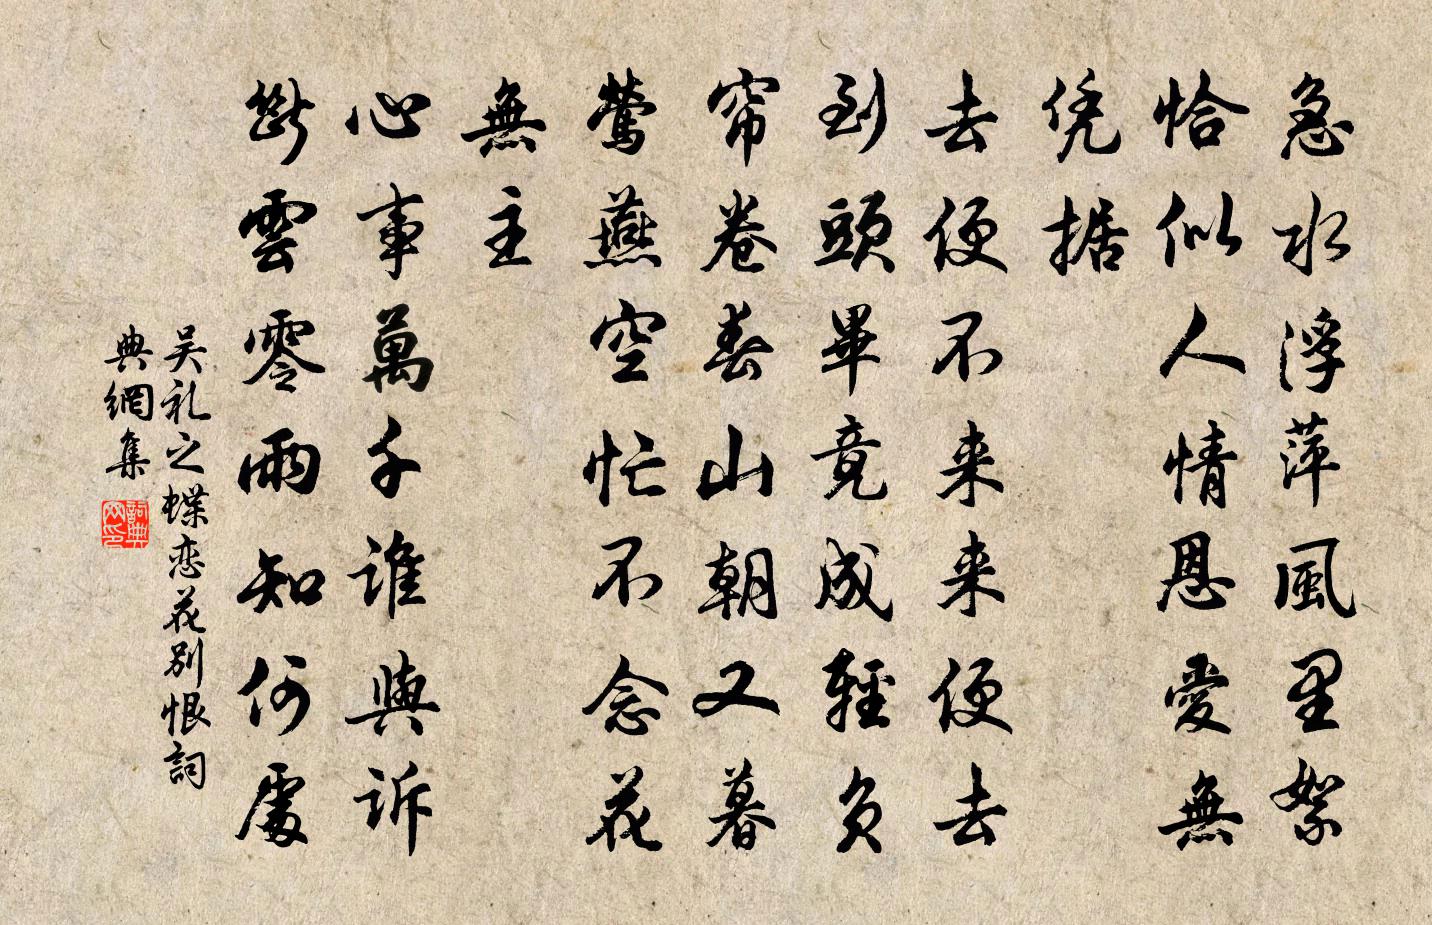 急水浮萍風里絮
恰似人情恩愛無
凭据
去便不来来便去
到頭畢竟成輕負
帘卷春山朝又暮
鶯燕空忙不念花
無主
心事萬千誰與訴
斷雲零雨知何處
吴礼之蝶恋花别恨詞
典網集
詞典
网印